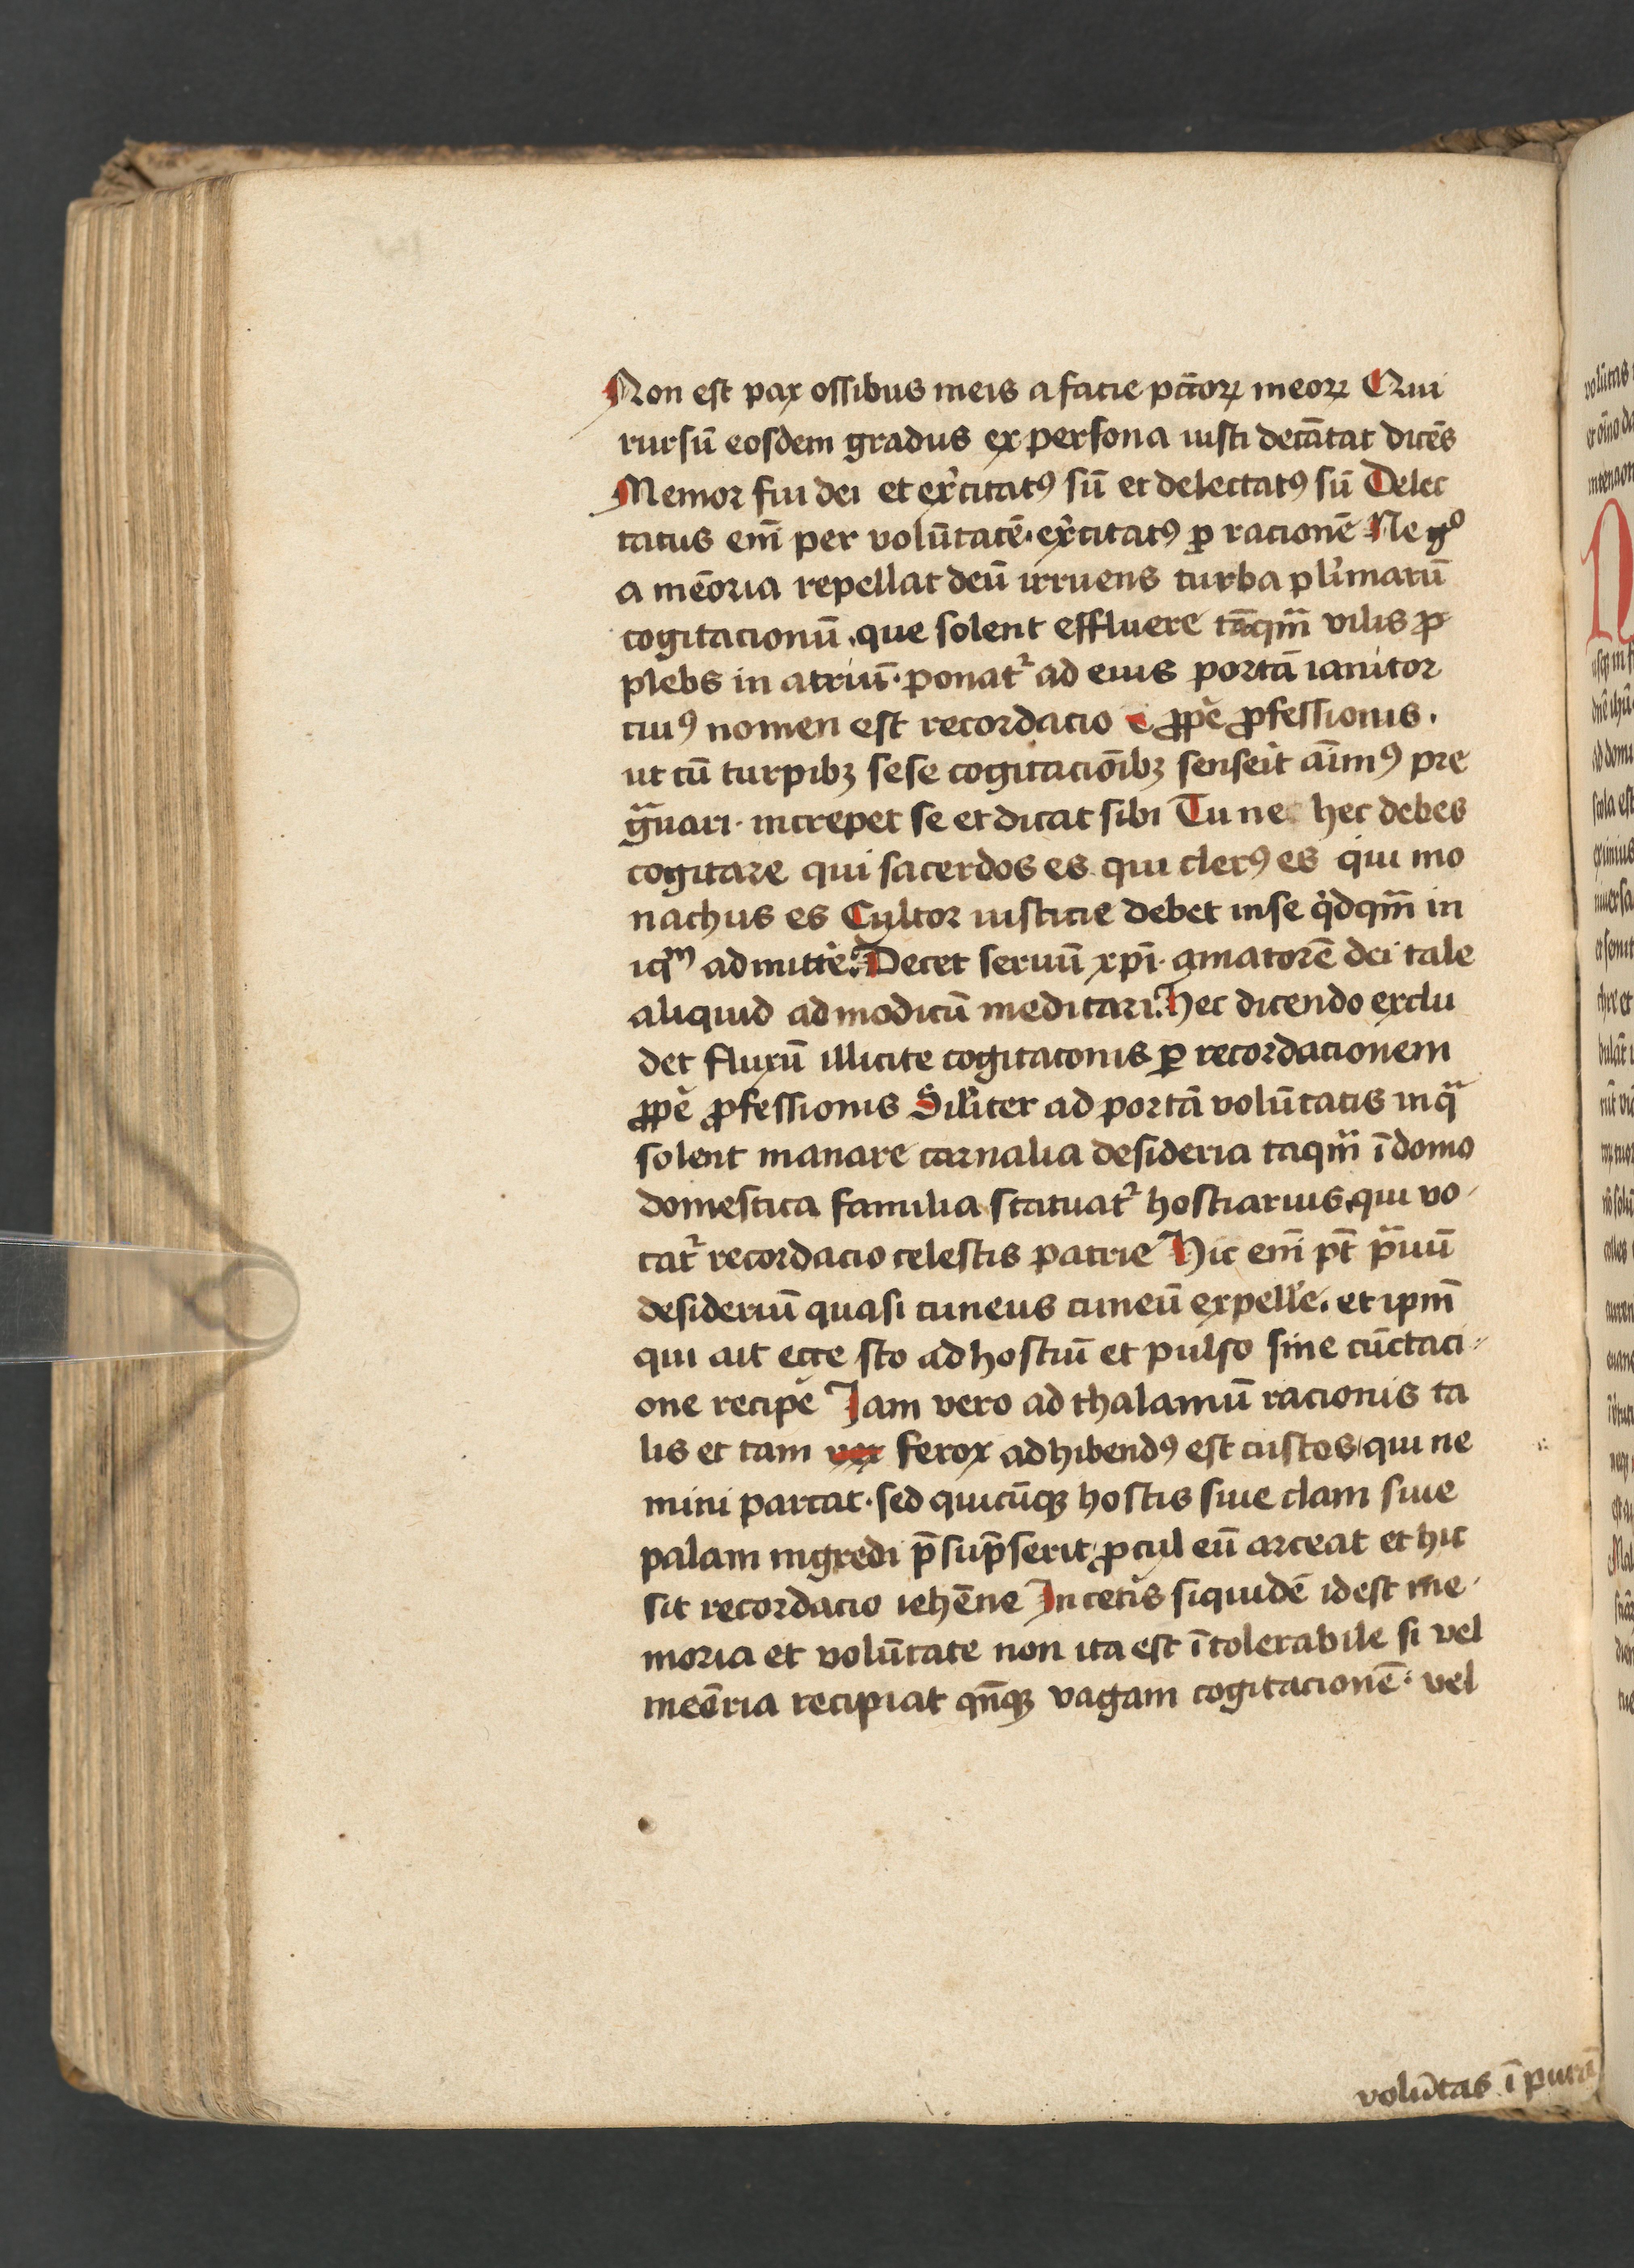 Non est pax ossibus meis a facie pctōꝝ meoꝝ Qui
rursū eosdem gradus ex persona iusti decātat dicēs
Memor fui dei et exͬcitatꝯ sū et delectatꝯ sū Delec
tatus em̄ per volūtatē · exͬcitatꝯ ꝑ racionē Ne gͦ
a mēoria repellat deū irruens turba plͬimarū
cogitacionū . que solent effluere tāqm̄ vilis ꝓ
plebs in atriū · ponatͬ ad eius portā ianitor
cuiꝯ nomen est recordacio e ꝓpͥe ꝓfessionis .
ut cū turpibꝫ sese cogitaciōibꝫ senseͥit aīmꝯ pre
gͣuari · increpet se et dicat sibi Tu nec hec debes
cogitare qui sacerdos es qui clerꝯ es qui mo
nachus es Cultor iusticie debet in se qͥdqm̄ in
iqͫ admittͤe . Decet seruū xp̄i · amatorē dei tale
aliquid ad modicū meditari . Hec dicendo exclu
det fluxū illicite cogitaconis ꝑ recordacionem
ꝓpͥe ꝓfessionis Silͥiter ad portā volūtatis in qͣ
solent manare carnalia desideria taqm̄ ī domo
domestica familia statuatͬ hostiarius qui vo
catͬ recordacio celestis patrie Hic em̄ pt̄ pͣuū
desideriū quasi cuneus cuneū expellͤe . et ipm̄
qui ait ecce sto ad hostiū et pulso sine cūctaci
one recipͤe Iam vero ad thalamū racionis ta
lis et tam vex ferox adhibendꝯ est custos qui ne
mini parcat · sed quicūqꝫ hostis siue clam siue
palam ingredi p̄sup̄serit ꝓcul eū arceat et hic
sit recordacio iehēne In cetͥis siquidē id est me
moria et volūtate non ita est ītolerabile si vel
meēria recipiat qn̄qꝫ vagam cogitacionē · vel
volūtas ī purā